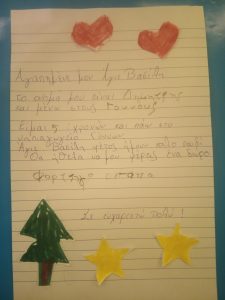 Αγαπημένε μου Άγιε Βασίλη
το όνομά μου είναι Δημήτρης
και μένω στους
Είμαι 5 χρονών και πάω στο
νηπιαγωγείο
Άγιε Βασίλη φέτος ήμουν καλό παιδί
Θα ήθελα να μου φέρεις ένα δώρο
Φορτηγό
Σε ευχαριστώ πολύ!